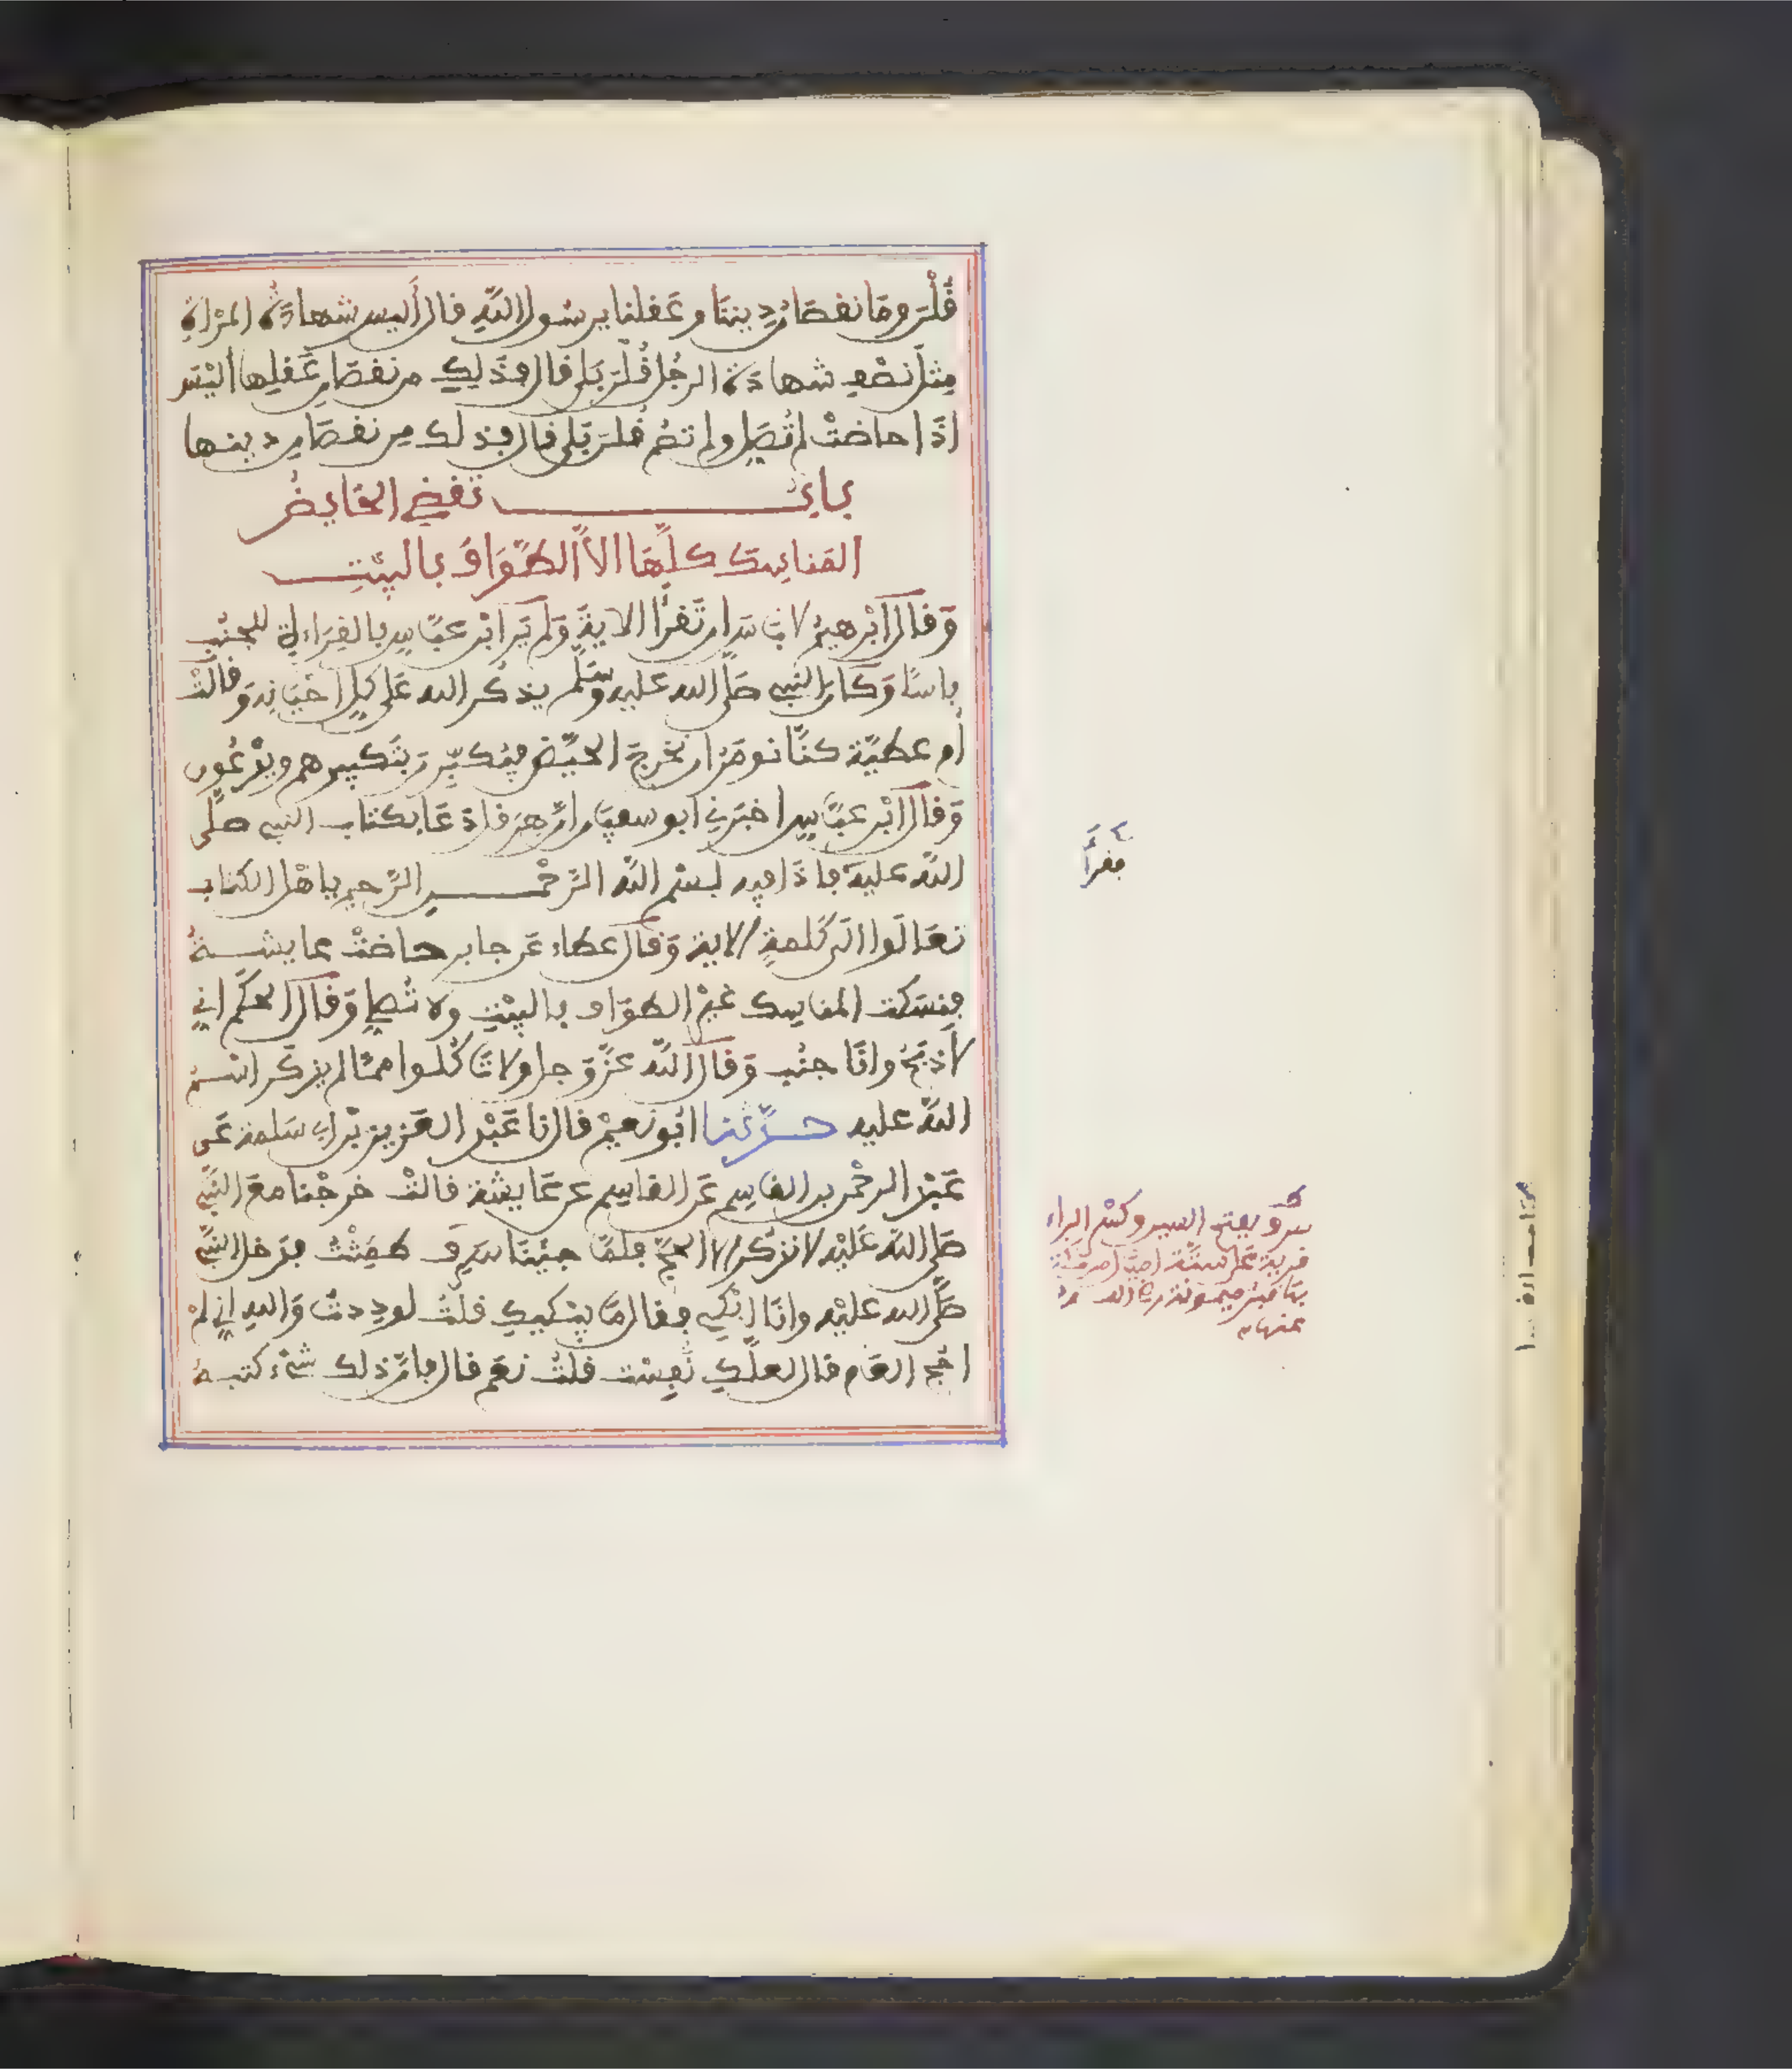 قُلْنَ وَمَا نقصَانُ دِيننَا وعَقلنا يرسُول اللَّهِ قال أَليس شهادَةُ المرْاةِ
مِثلَ نصْفِ شهادَةِ الرجُل قُلْنَ بَلى قال فذَلِكِ من نقصَانِ عَقلِها أليْسَ
اذَا حاضتْ لم تُصَلِّ ولم تصُم قُلنَ بَلى قال فذلك مِن نقصَانِ دينها
بابُ تقضي الحَايضُ
المَناسِكَ كلَّهَا الاَّ الطَّوَافَ بالبيْتِ
وَقال ابْرهيمُ لا بَاسَ ان تَقرَأ الايةَ وَلم يَرَ ابْن عبَّاس بالقِرَاءَةِ للجُنُبِ
باسًا وَكانَ النبي صَلى الله عليه وسَلم يذكُر الله عَلى كلِّ احْيَانِهِ وَقالتْ
أم عطيَّة كنَّا نومَرُ ان نخرجَ الحيَّض فيُكبِّرنَ بتَكبيرهم ويدْعُون
وَقال ابْن عبَّاس اخبَرَنِي ابو سفيَان انَّ هِرَقل دَعَا بكتاب النبي صلَّى
اللَّه عليهْ فاذَا فيه بسْم اللَّه الرَّحْمن الرَّحيم ياهْل الكتاب
تعَالَوا الى كَلمةٍ الاية وَقال عطاء عَن جابر حاضتْ عايشةُ
فنسَكت المناسك غيْرَ الطوَاف بالبيْتِ ولا تُصلي وَقال الحكَم اني
لأذبَحُ وانَا جنُب وَقال اللَّه عزَّ وَجل ولا تَاكُلوا ممَّا لم يذكَر اسْمُ
اللَّه عليه حدَّثنا ابُو نعيْم قال نا عَبْد العَزيز بْن ابي سَلمة عَن
عَبْد الرحْمن بن القاسِم عَن القاسِم عن عَايشة قالتْ خرجْنا معَ النَّبي
صَلى اللَّه عَليْه لا نذكُر الا الحجَّ فلمَّا جئنَا سَرِفَ طمِثْتُ فدَخل النَّبي
صَلَّى الله عليْه وانَا ابْكي فقال مَا يبْكيكِ قلتُ لودِدتُ وَاللهِ اني لمْ
احُج العَام قال لعلَّكِ نُفِسْت قلتُ نعَم قال فانَّ ذلك شيْء كتبهُ
فقرأَ
سرف بفتح السين وكسْر الراء
قرية على ستّة اميَال من مكة
بها قبر ميمونة رضي الله
عنها